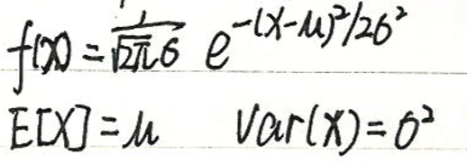 f(x) = 1/√2π σ e^-(x-μ)²/2σ²
E[X] = μ Var(X) = σ²